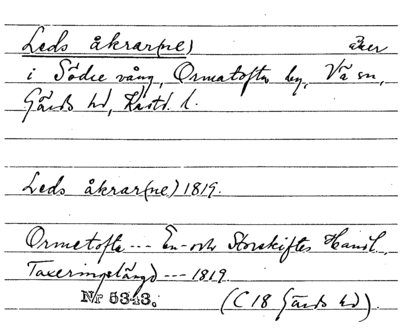 Leds åkrar(ne) åker
i Södre vång, Ormatofta by, Vä sn,
Gärds hd, Krist. l.
Leds åkrar(ne) 1819.
Ormetofta --- En- och Storskiftes Handl.
Taxeringslängd --- 1819.
Nr 5343. (C 18 Gärds hd).